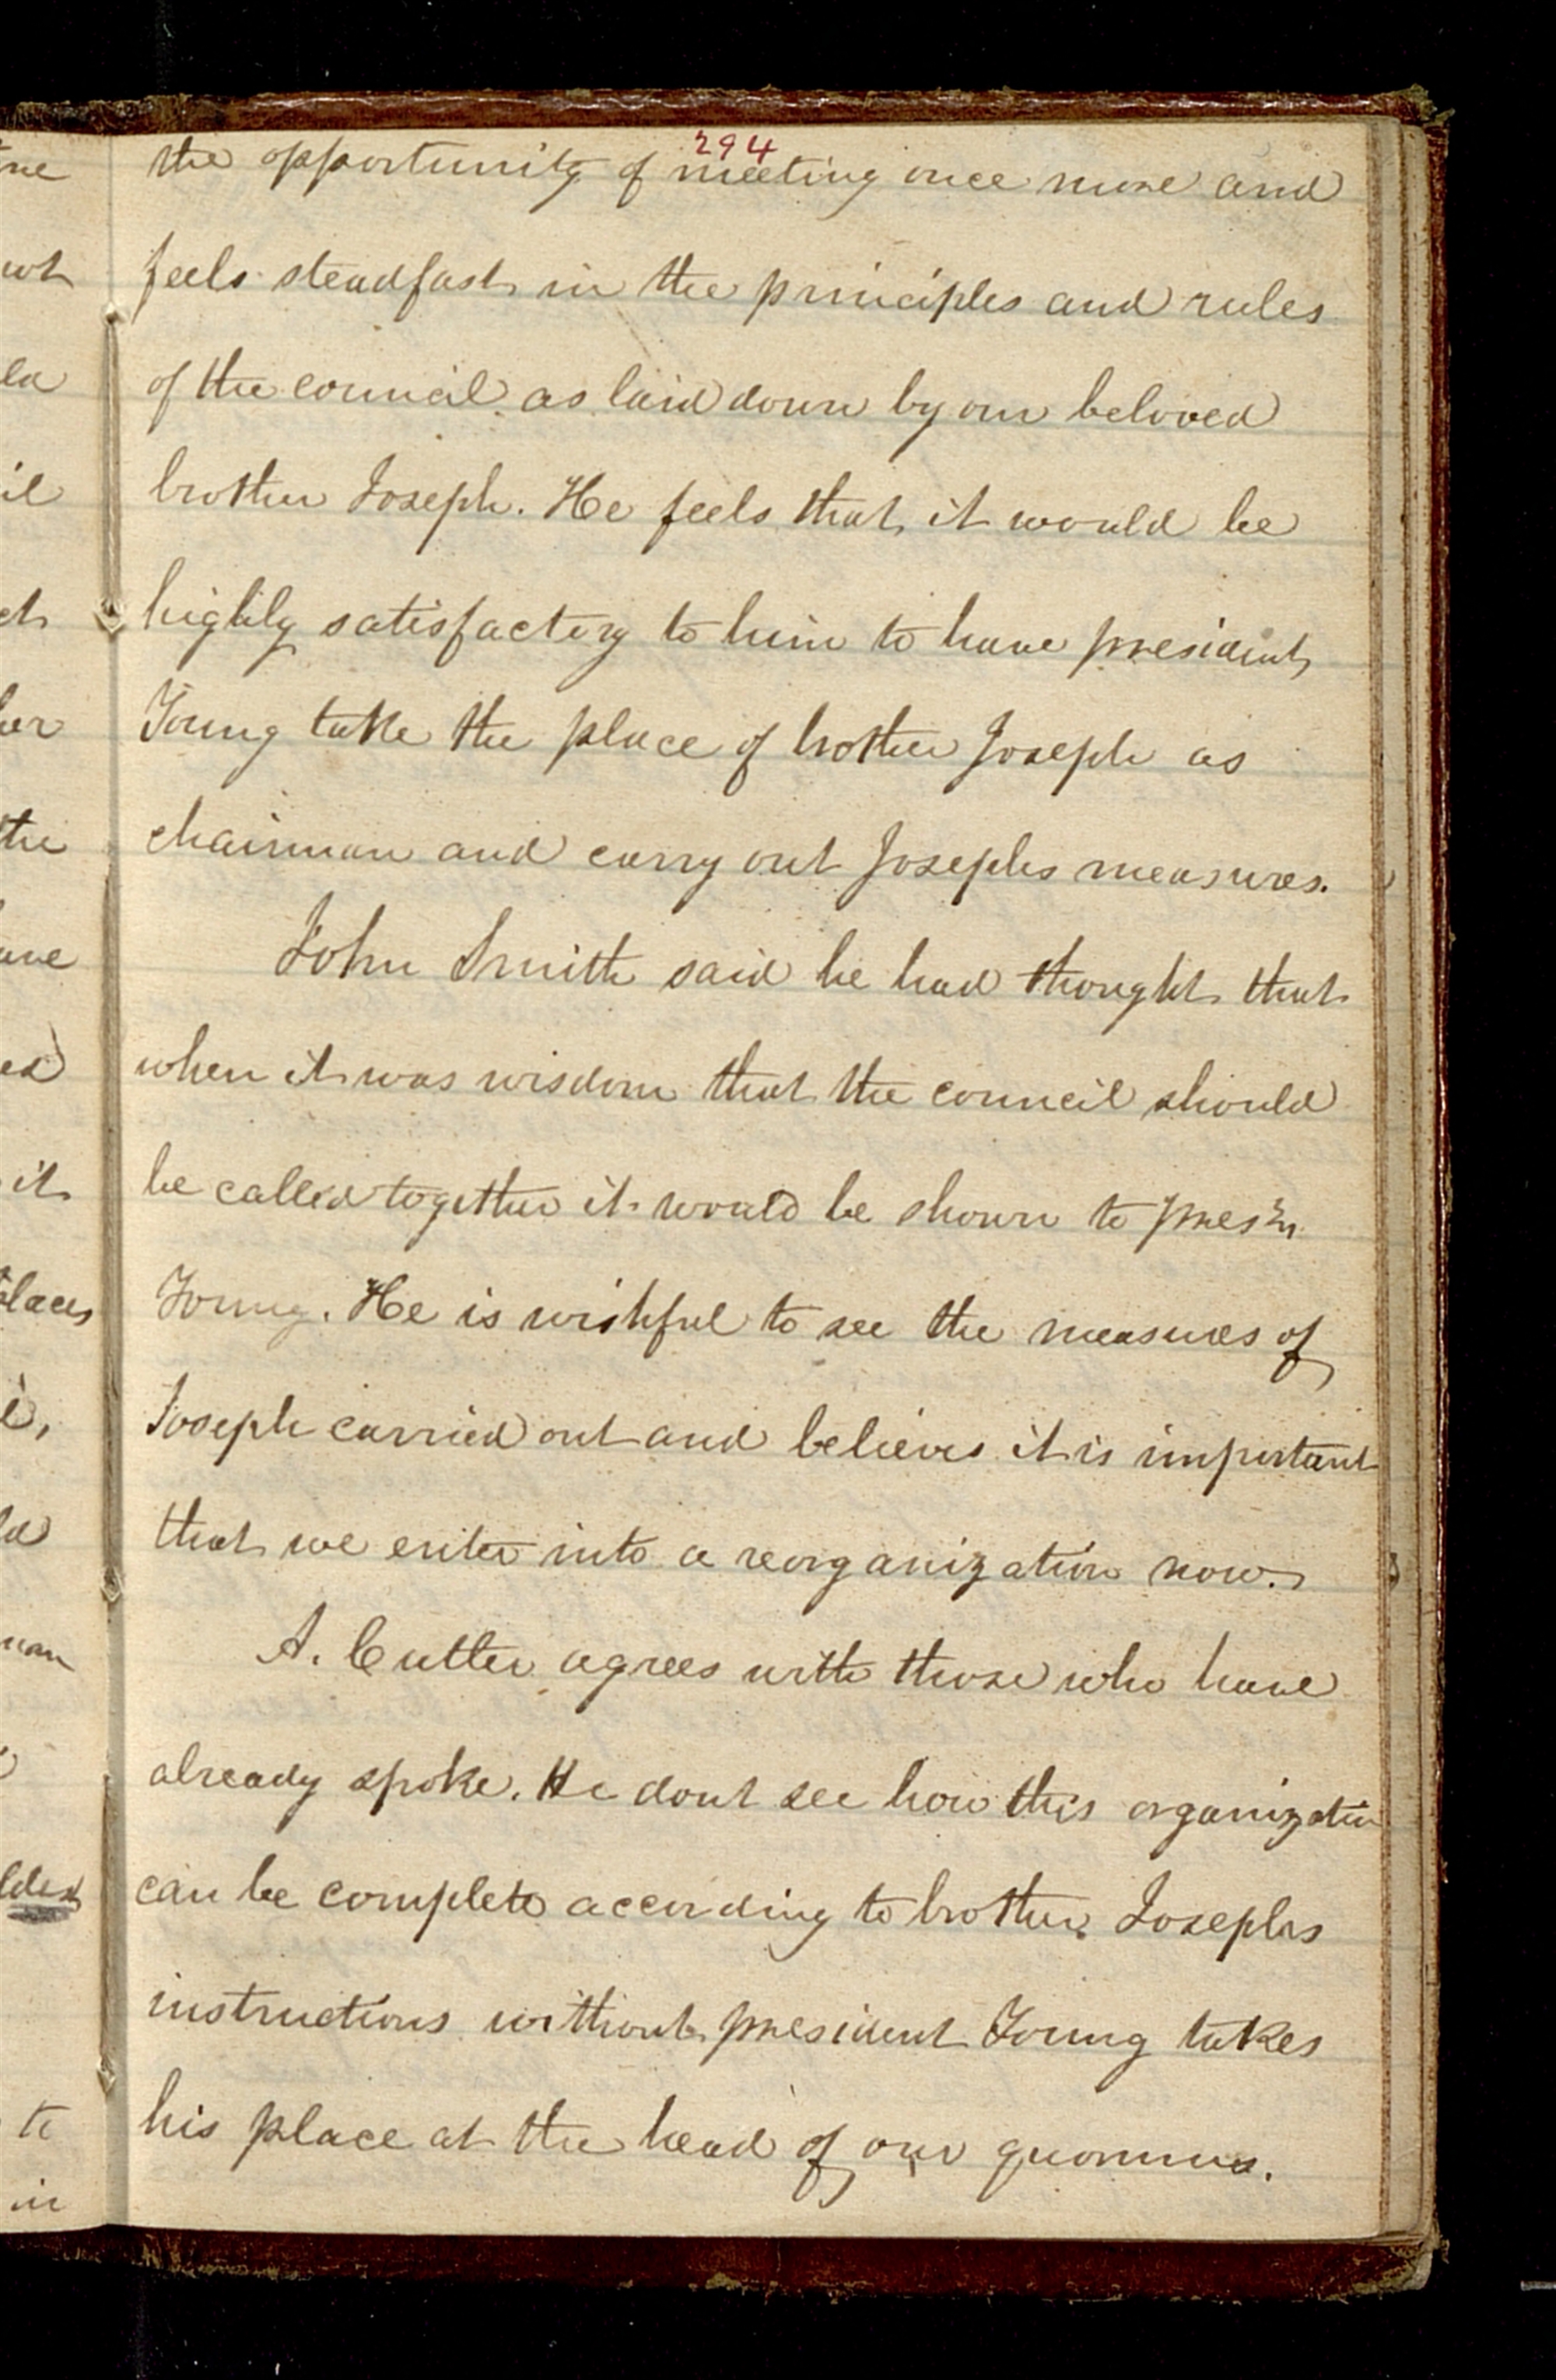 294
the opportunity of meeting once more and
feels steadfast in the principles and rules
of the council as laid down by our beloved
brother Joseph. He feels that it would be
highly satisfactory to him to have president
Young take the place of brother Joseph as
chairman and carry out Josephs measures.
John Smith said he had thought that
when it was wisdom that the council should
be called together it would be shown to
Young. He is wishful to see the measures of
Joseph carried out and believes it is important
that we enter into a reorganization now.
A. Cutler agrees with those who have
already spoke. He dont see how this organization
can be complete according to brother Josephs
instructions without president Young takes
his place at the head of our quorum.